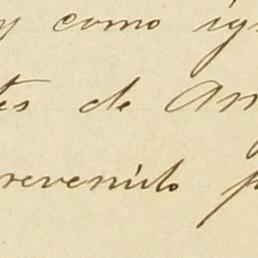 y como ig
tes de An
revenido p